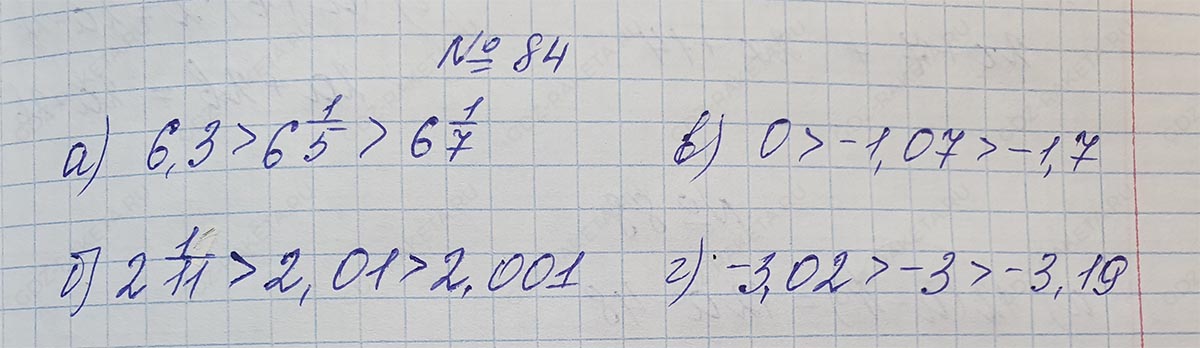 № 84
а) 6,3 > 6 1/5 > 6 1/7
в) 0 > -1,07 > -1,7
б) 2 1/11 > 2,01 > 2,001
г) -3,02 > -3 > -3,19